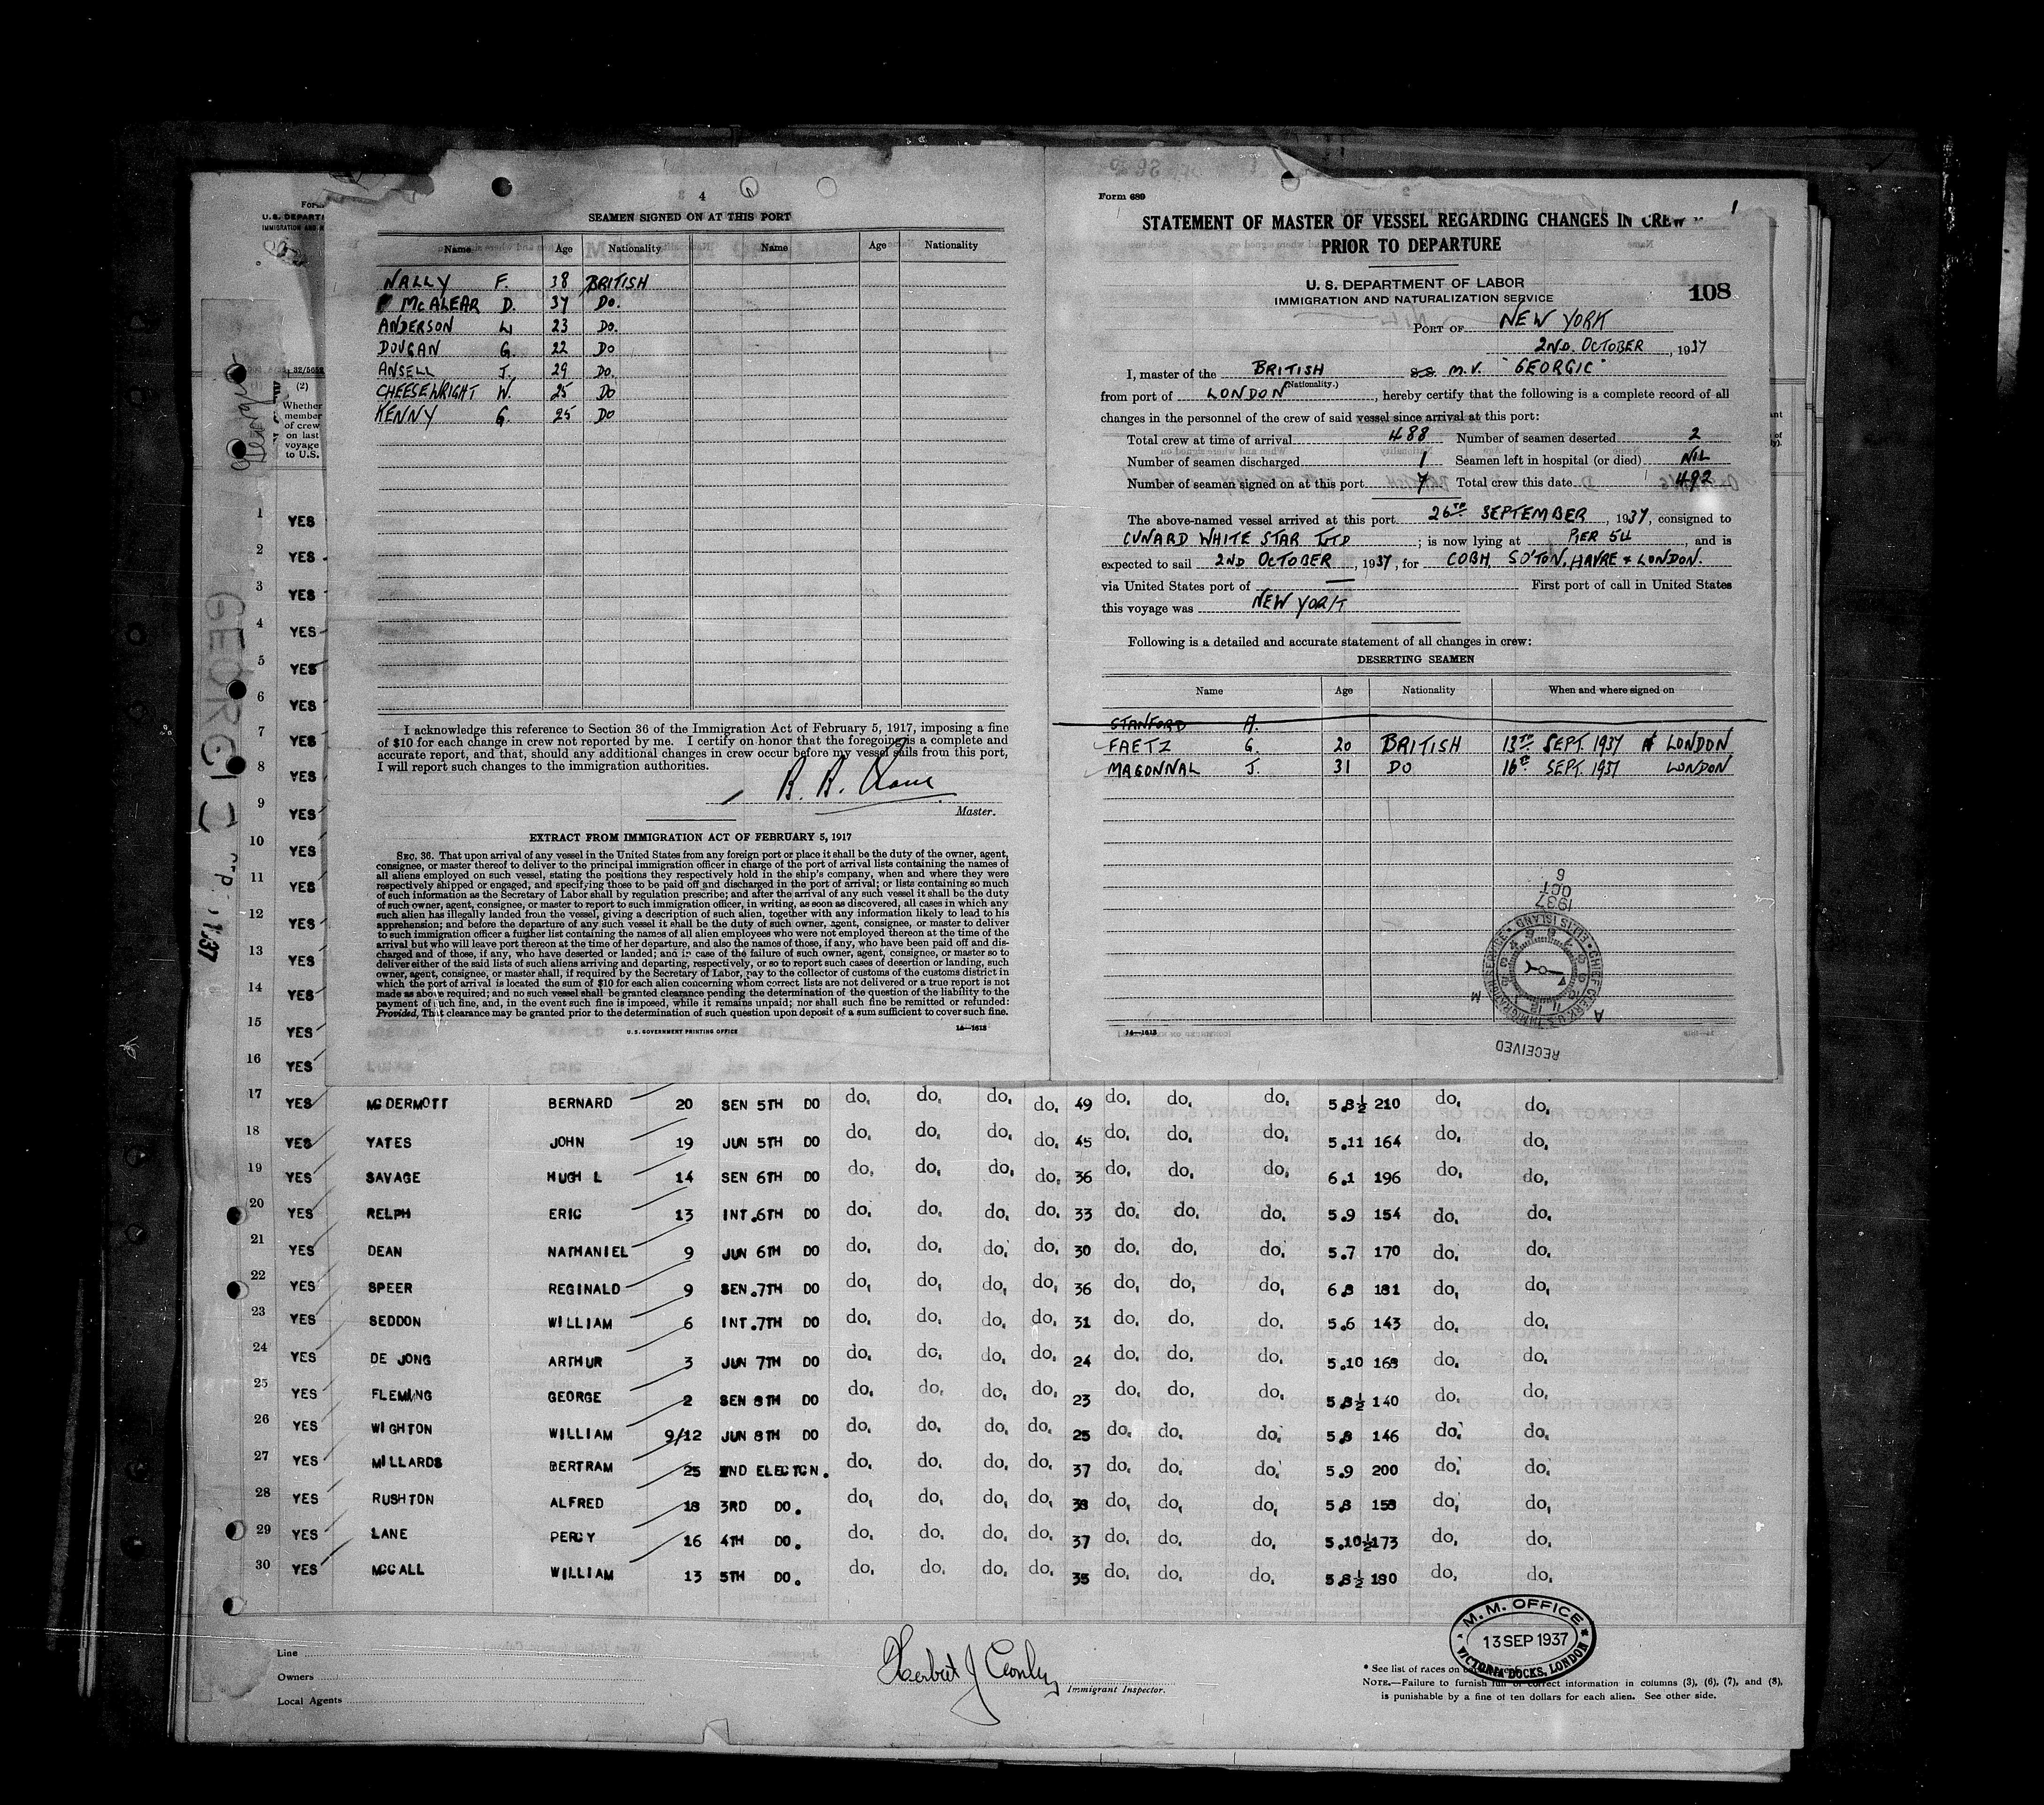 4
SEAMEN SIGNED ON AT THIS PORT
Name Age Nationality Name Age Nationality
NALLY F. 38 BRITISH
McALEAR D. 37 Do.
ANDERSON W 23 Do.
DOUGAN G. 22 Do
ANSELL J. 29 Do.
CHEESEWRIGHT W. 25 Do
KENNY G. 25 Do
I acknowledge this reference to Section 36 of the Immigration Act of February 5, 1917, imposing a fine
of $10 for each change in crew not reported by me. I certify on honor that the foregoing is a complete and
accurate report, and that, should any additional changes in crew occur before my vessel sails from this port,
I will report such changes to the immigration authorities.
Master.
EXTRACT FROM IMMIGRATION ACT OF FEBRUARY 5, 1917
SEC. 36. That upon arrival of any vessel in the United States from any foreign port or place it shall be the duty of the owner, agent,
consignee, or master thereof to deliver to the principal immigration officer in charge of the port of arrival lists containing the names of
all aliens employed on such vessel, stating the positions they respectively hold in the ship's company, when and where they were
respectively shipped or engaged, and specifying those to be paid off and discharged in the port of arrival; or lists containing so much
of such information as the Secretary of Labor shall by regulation prescribe; and after the arrival of any such vessel it shall be the duty
of such owner, agent, consignee, or master to report to such immigration officer, in writing, as soon as discovered, all cases in which any
such alien has illegally landed from the vessel, giving a description of such alien, together with any information likely to lead to his
apprehension; and before the departure of any such vessel it shall be the duty of such owner, agent, consignee, or master to deliver
to such immigration officer a further list containing the names of all alien employees who were not employed thereon at the time of the
arrival but who will leave port thereon at the time of her departure, and also the names of those, if any, who have been paid off and dis-
charged and of those, if any, who have deserted or landed; and in case of the failure of such owner, agent, consignee, or master so to
deliver either of the said lists of such aliens arriving and departing, respectively, or so to report such cases of desertion or landing, such
owner, agent, consignee, or master shall, if required by the Secretary of Labor, pay to the collector of customs of the customs district in
which the port of arrival is located the sum of $10 for each alien concerning whom correct lists are not delivered or a true report is not
made as above required; and no such vessel shall be granted clearance pending the determination of the question of the liability to the
payment of such fine, and, in the event such fine is imposed, while it remains unpaid; nor shall such fine be remitted or refunded:
Provided, That clearance may be granted prior to the determination of such question upon deposit of a sum sufficient to cover such fine.
U. S. GOVERNMENT PRINTING OFFICE 14—1613
Form 689
STATEMENT OF MASTER OF VESSEL REGARDING CHANGES IN CREW
PRIOR TO DEPARTURE
U. S. DEPARTMENT OF LABOR
IMMIGRATION AND NATURALIZATION SERVICE
108
PORT OF NEW YORK
2ND. OCTOBER, 1937
I, master of the BRITISH S.S. M.V. "GEORGIC"
(Nationality.)
from port of LONDON, hereby certify that the following is a complete record of all
changes in the personnel of the crew of said vessel since arrival at this port:
Total crew at time of arrival 488 Number of seamen deserted 2
Number of seamen discharged 1 Seamen left in hospital (or died) NIL
Number of seamen signed on at this port 7 Total crew this date 492
The above-named vessel arrived at this port 26TH SEPTEMBER, 1937, consigned to
CUNARD WHITE STAR LTD; is now lying at PIER 54, and is
expected to sail 2ND OCTOBER, 1937, for COBH, SO'TON, HAVRE & LONDON.
via United States port of — First port of call in United States
this voyage was NEW YORK
Following is a detailed and accurate statement of all changes in crew:
DESERTING SEAMEN
Name Age Nationality When and where signed on
STANFORD A.
FAETZ G. 20 BRITISH 13TH SEPT. 1937 LONDON
MAGONNAL J. 31 DO 16TH SEPT. 1937 LONDON
1937
OCT
6
CHIEF CLERK U.S. IMMIGRATION SERVICE ELLIS ISLAND
RECEIVED
14—1613
Form
U.S. DEPARTM
IMMIGRATION AND N
32/5658
(2)
Whether
member
of crew
on last
voyage
to U.S.
GEORGIC
1 YES
2 YES
3 YES
4 YES
5 YES
6 YES
7 YES
8 YES
9 YES
10 YES
11 YES
12 YES
13 YES
14 YES
15 YES
16 YES
17 YES MCDERMOTT BERNARD 20 SEN 5TH DO do. do. do. do. 49 do. do. do. 5.8½ 210 do. do.
18 YES YATES JOHN 19 JUN 5TH DO do. do. do. do. 45 do. do. do. 5.11 164 do. do.
19 YES SAVAGE HUGH L 14 SEN 6TH DO do. do. do. do. 36 do. do. do. 6.1 196 do. do.
20 YES RELPH ERIC 13 INT.6TH DO do. do. do. do. 33 do. do. do. 5.9 154 do. do.
21 YES DEAN NATHANIEL 9 JUN 6TH DO do. do. do. do. 30 do. do. do. 5.7 170 do. do.
22 YES SPEER REGINALD 9 SEN.7TH DO do. do. do. do. 36 do. do. do. 6.8 181 do. do.
23 YES SEDDON WILLIAM 6 INT.7TH DO do. do. do. do. 31 do. do. do. 5.6 143 do. do.
24 YES DE JONG ARTHUR 3 JUN 7TH DO do. do. do. do. 24 do. do. do. 5.10 168 do. do.
25 YES FLEMING GEORGE 2 SEN 8TH DO do. do. do. do. 23 do. do. do. 5.8½ 140 do. do.
26 YES WIGHTON WILLIAM 9/12 JUN 8TH DO do. do. do. do. 25 do. do. do. 5.8 146 do. do.
27 YES MILLARDS BERTRAM 25 2ND ELECTCN. do. do. do. do. 37 do. do. do. 5.9 200 do. do.
28 YES RUSHTON ALFRED 18 3RD DO. do. do. do. do. 38 do. do. do. 5.8 158 do. do.
29 YES LANE PERCY 16 4TH DO. do. do. do. do. 37 do. do. do. 5.10½ 173 do. do.
30 YES MCCALL WILLIAM 13 5TH DO. do. do. do. do. 35 do. do. do. 5.8½ 180 do. do.
Line
Owners
Local Agents
Immigrant Inspector.
M. M. OFFICE
13 SEP 1937
VICTORIA DOCKS, LONDON
* See list of races on
NOTE.—Failure to furnish full or correct information in columns (3), (6), (7), and (8),
is punishable by a fine of ten dollars for each alien. See other side.